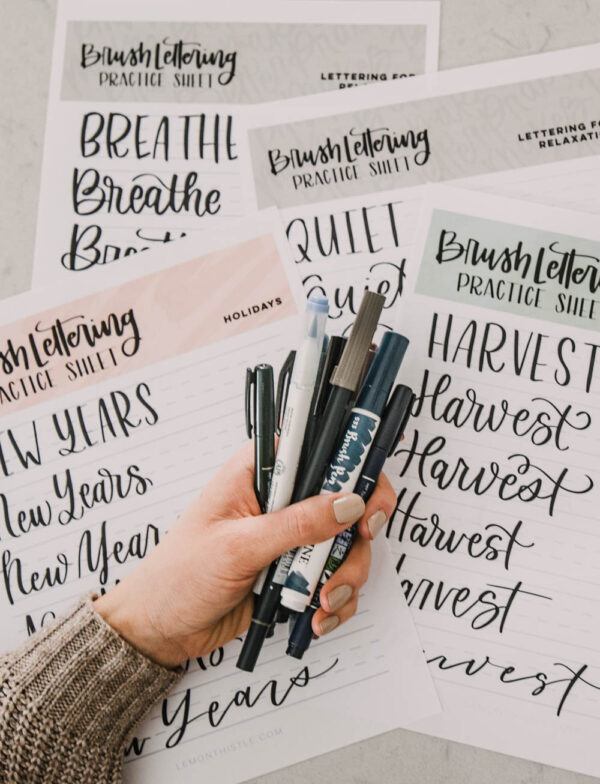 Brush Lettering
PRACTICE SHEET
LETTERING FOR
BREATHE
Breathe
Brush Lettering
PRACTICE SHEET
LETTERING FO
RELAXATI
QUIET
Quiet
Brush Lettering
PRACTICE SHEE
HARVEST
Harvest
Harvest
Harvest
Harvest
Harvest
sh Lettering
ACTICE SHEET
HOLIDAYS
EW YEARS
New Years
New Year
Years
LEMONTHISTLE.COM
Brush Pen